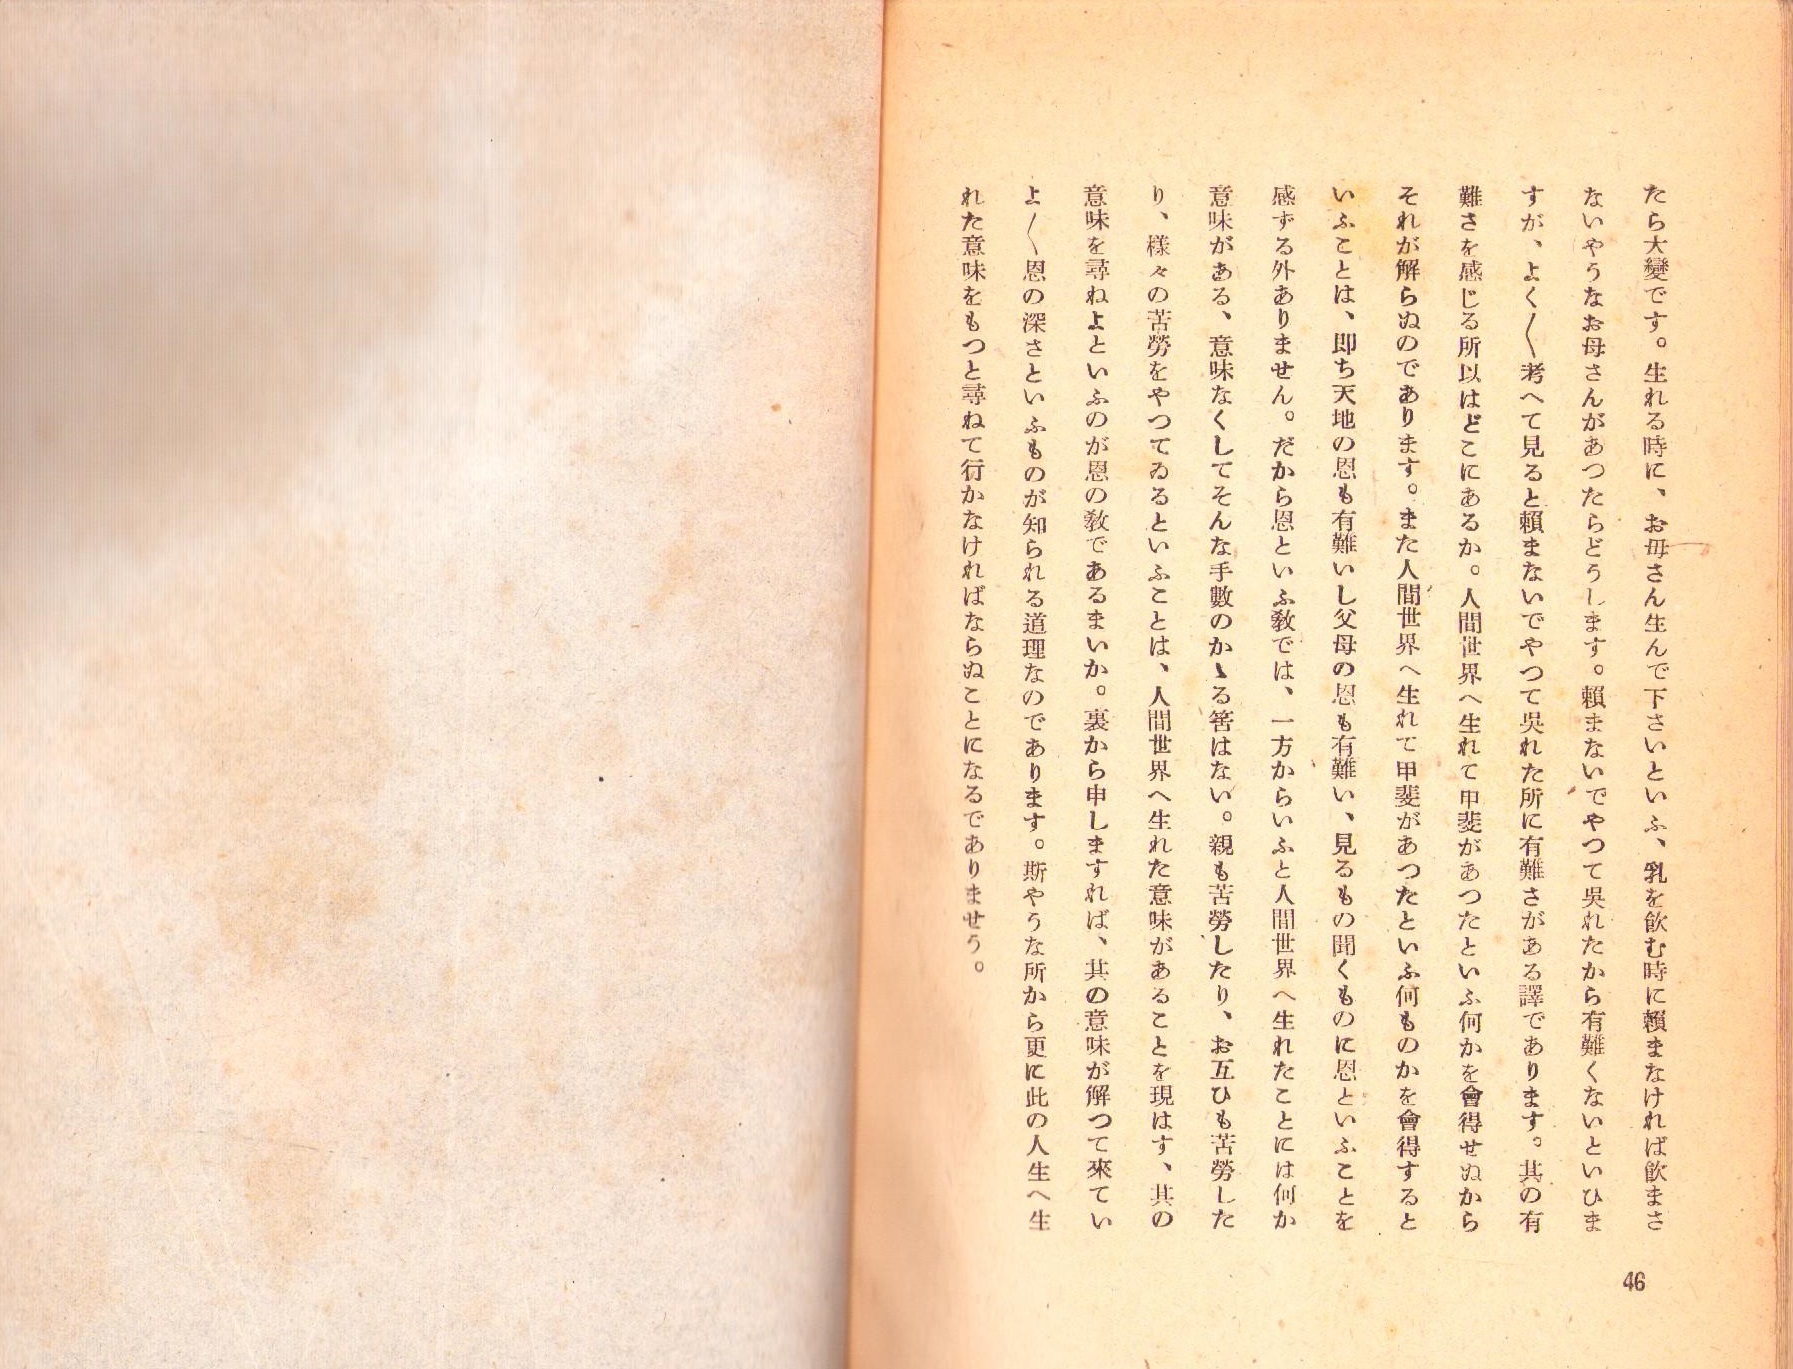 たら大變です。生れる時に、お母さん生んで下さいといふ、乳を飲む時に賴まなければ飲まさ
ないやうなお母さんがあつたらどうします。賴まないでやつて吳れたから有難くないといひま
すが、よく〳〵考へて見ると賴まないでやつて吳れた所に有難さがある譯であります。其の有
難さを感じる所以はどこにあるか。人間世界へ生れて甲斐があつたといふ何かを會得せぬから
それが解らぬのであります。また人間世界へ生れて甲斐があつたといふ何ものかを會得すると
いふことは、即ち天地の恩も有難いし父母の恩も有難い、見るもの聞くものに恩といふことを
感ずる外ありません。だから恩といふ敎では、一方からいふと人間世界へ生れたことには何か
意味がある、意味なくしてそんな手數のかゝる筈はない。親も苦勞したり、お互ひも苦勞した
り、樣々の苦勞をやつてゐるといふことは、人間世界へ生れた意味があることを現はす、其の
意味を尋ねよといふのが恩の敎であるまいか。裏から申しますれば、其の意味が解つて來てい
よ〳〵恩の深さといふものが知られる道理なのであります。斯やうな所から更に此の人生へ生
れた意味をもつと尋ねて行かなければならぬことになるでありませう。
46